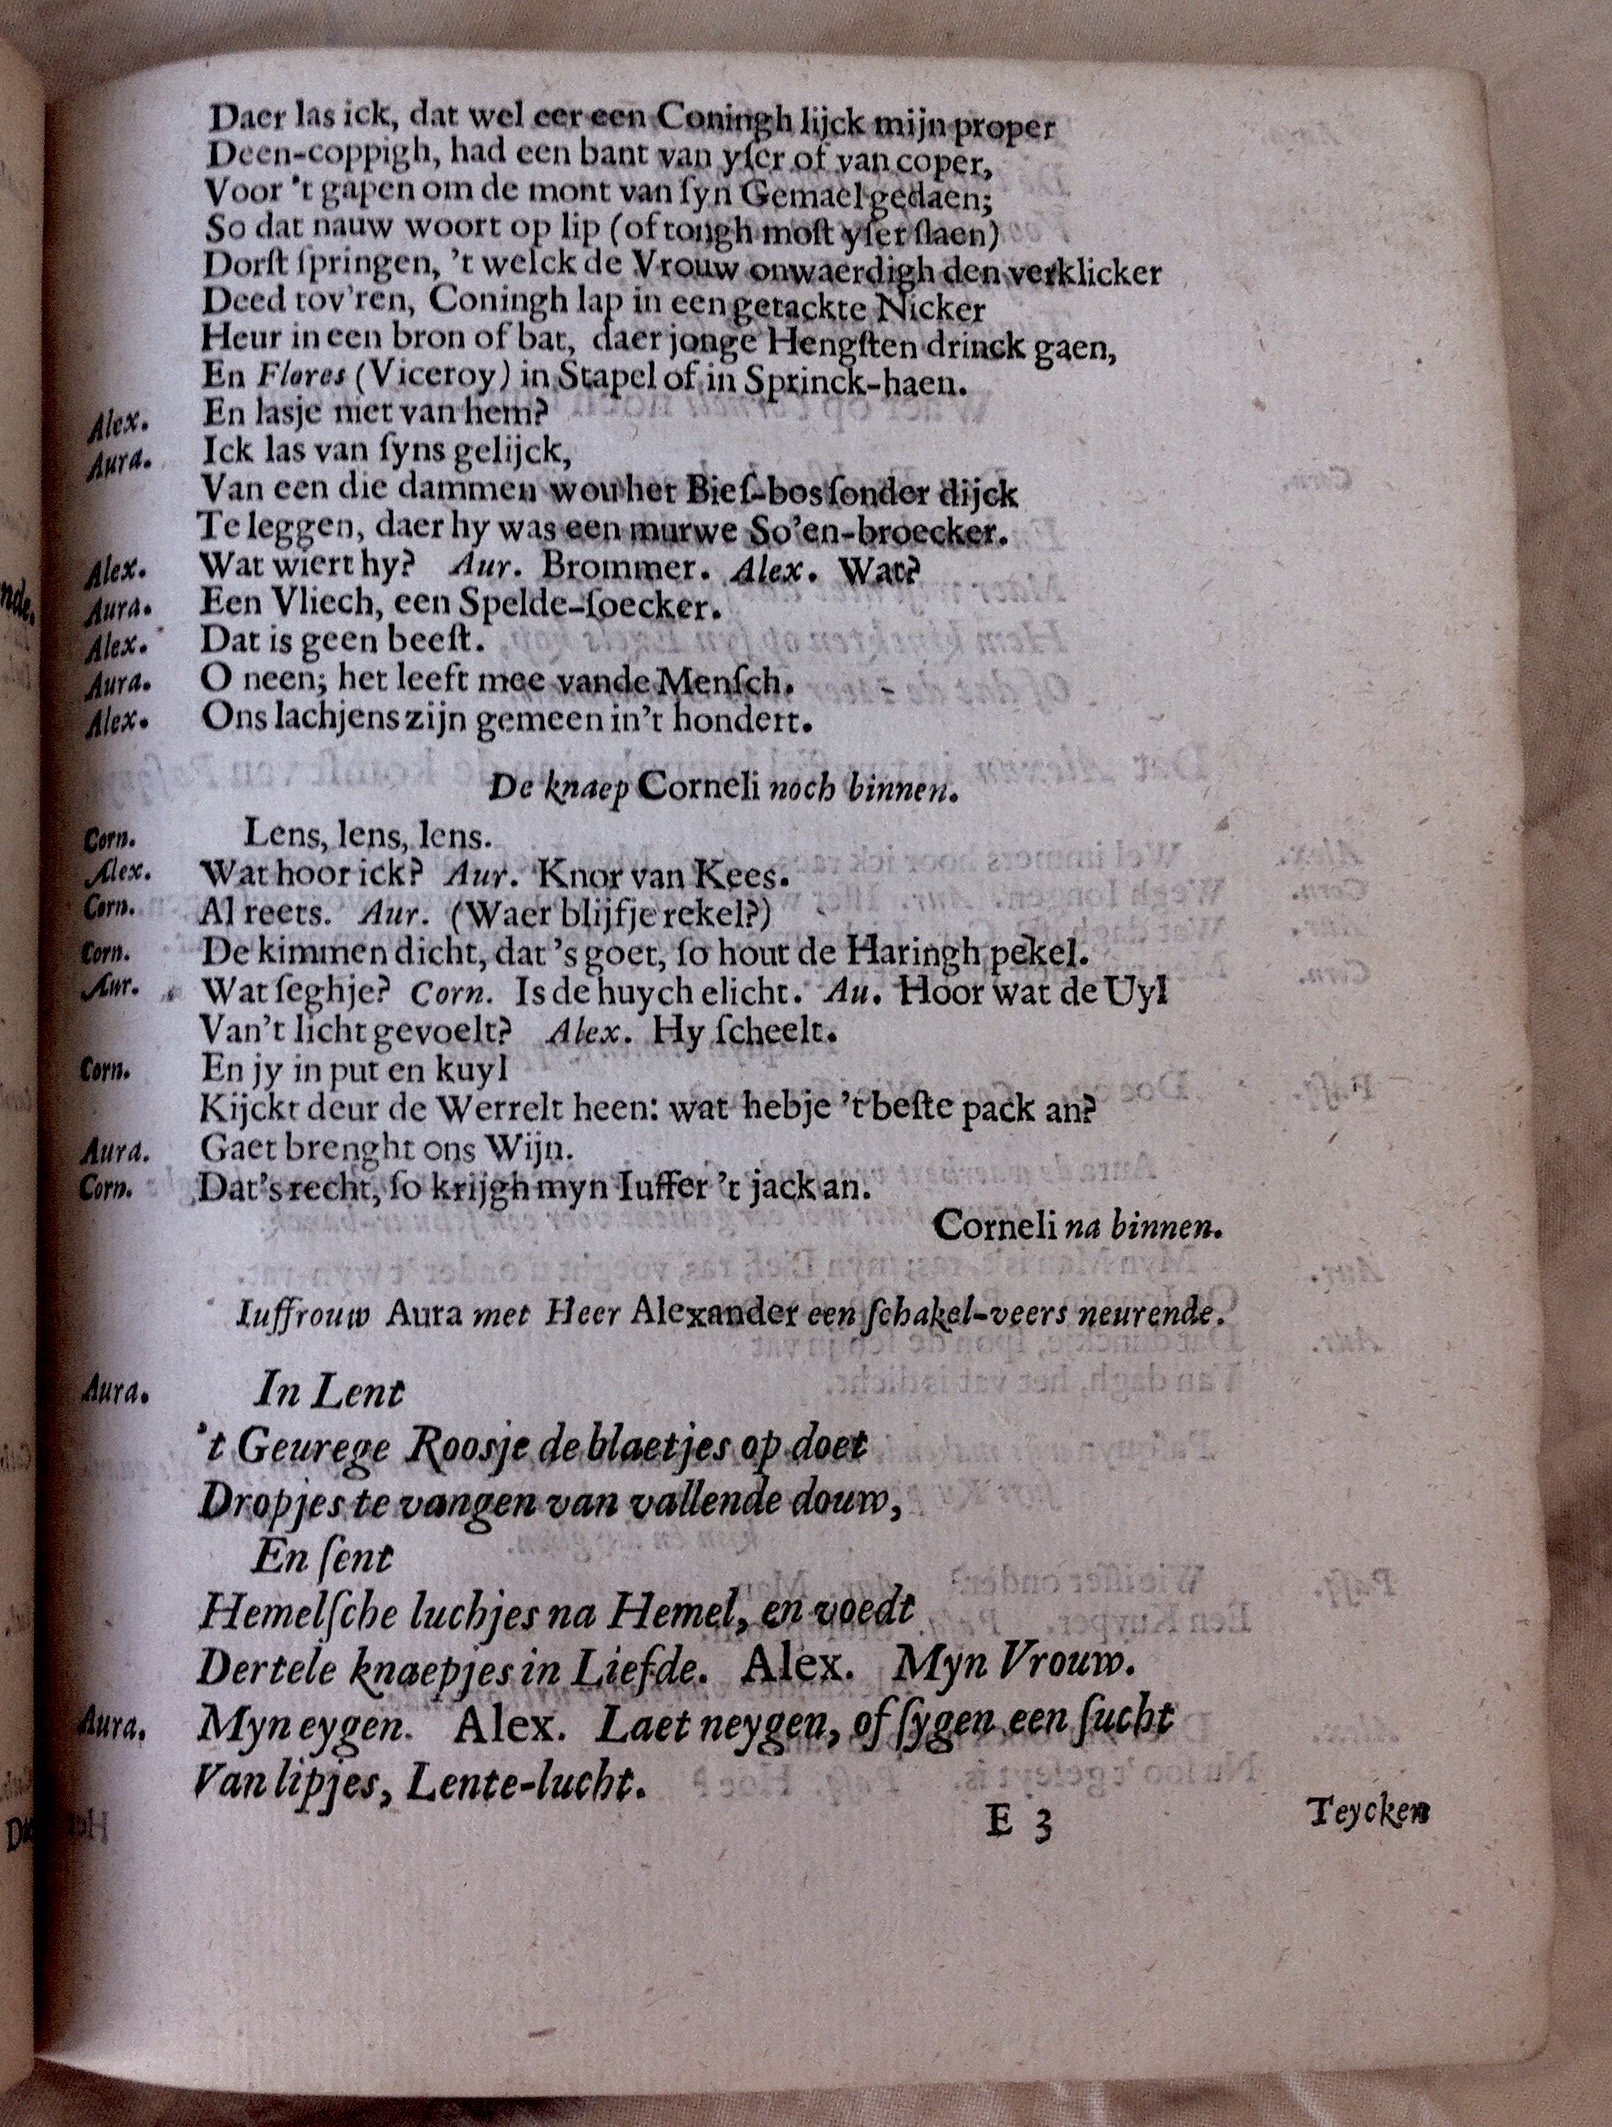 Daer las ick, dat wel eer een Coningh lijck mijn proper
Deen-coppigh, had een bant van yſer of van coper,
Voor 't gapen om de mont van ſyn Gemael gedaen;
So dat nauw woort op lip (of tongh moſt yſer ſlaen)
Dorſt ſpringen, 't welck de Vrouw onwaerdigh den verklicker
Deed tov'ren, Coningh lap in een getackte Nicker
Heur in een bron of bat, daer jonge Hengſten drinck gaen,
En Flores (Viceroy) in Stapel of in Sprinck-haen.
Alex. En lasje niet van hem?
Aura. Ick las van ſyns gelijck,
Van een die dammen wou het Bieſ-bos ſonder dijck
Te leggen, daer hy was een murwe So'en-broecker.
Alex. Wat wiert hy? Aur. Brommer. Alex. Wat?
Aura. Een Vliech, een Spelde-ſoecker.
Alex. Dat is geen beeſt.
Aura. O neen; het leeft mee vande Menſch.
Alex. Ons lachjens zijn gemeen in't hondert.
De knaep Corneli noch binnen.
Corn. Lens, lens, lens.
Alex. Wat hoor ick? Aur. Knor van Kees.
Corn. Al reets. Aur. (Waer blijfje rekel?)
Corn. De kimmen dicht, dat 's goet, ſo hout de Haringh pekel.
Aur. Wat ſeghje? Corn. Is de huych elicht. Au. Hoor wat de Uyl
Van't licht gevoelt? Alex. Hy ſcheelt.
Corn. En jy in put en kuyl
Kijckt deur de Werrelt heen: wat hebje 't beſte pack an?
Aura. Gaet brenght ons Wijn.
Corn. Dat's recht, ſo krijgh myn Iuffer 't jack an.
Corneli na binnen.
Iuffrouw Aura met Heer Alexander een ſchakel-veers neurende.
Aura. In Lent
't Geurege Roosje de blaetjes op doet
Dropjes te vangen van vallende douw,
En ſent
Hemelſche luchjes na Hemel, en voedt
Dertele knaepjes in Liefde. Alex. Myn Vrouw.
Aura. Myn eygen. Alex. Laet neygen, of ſygen een ſucht
Van lipjes, Lente-lucht.
E 3 Teycken